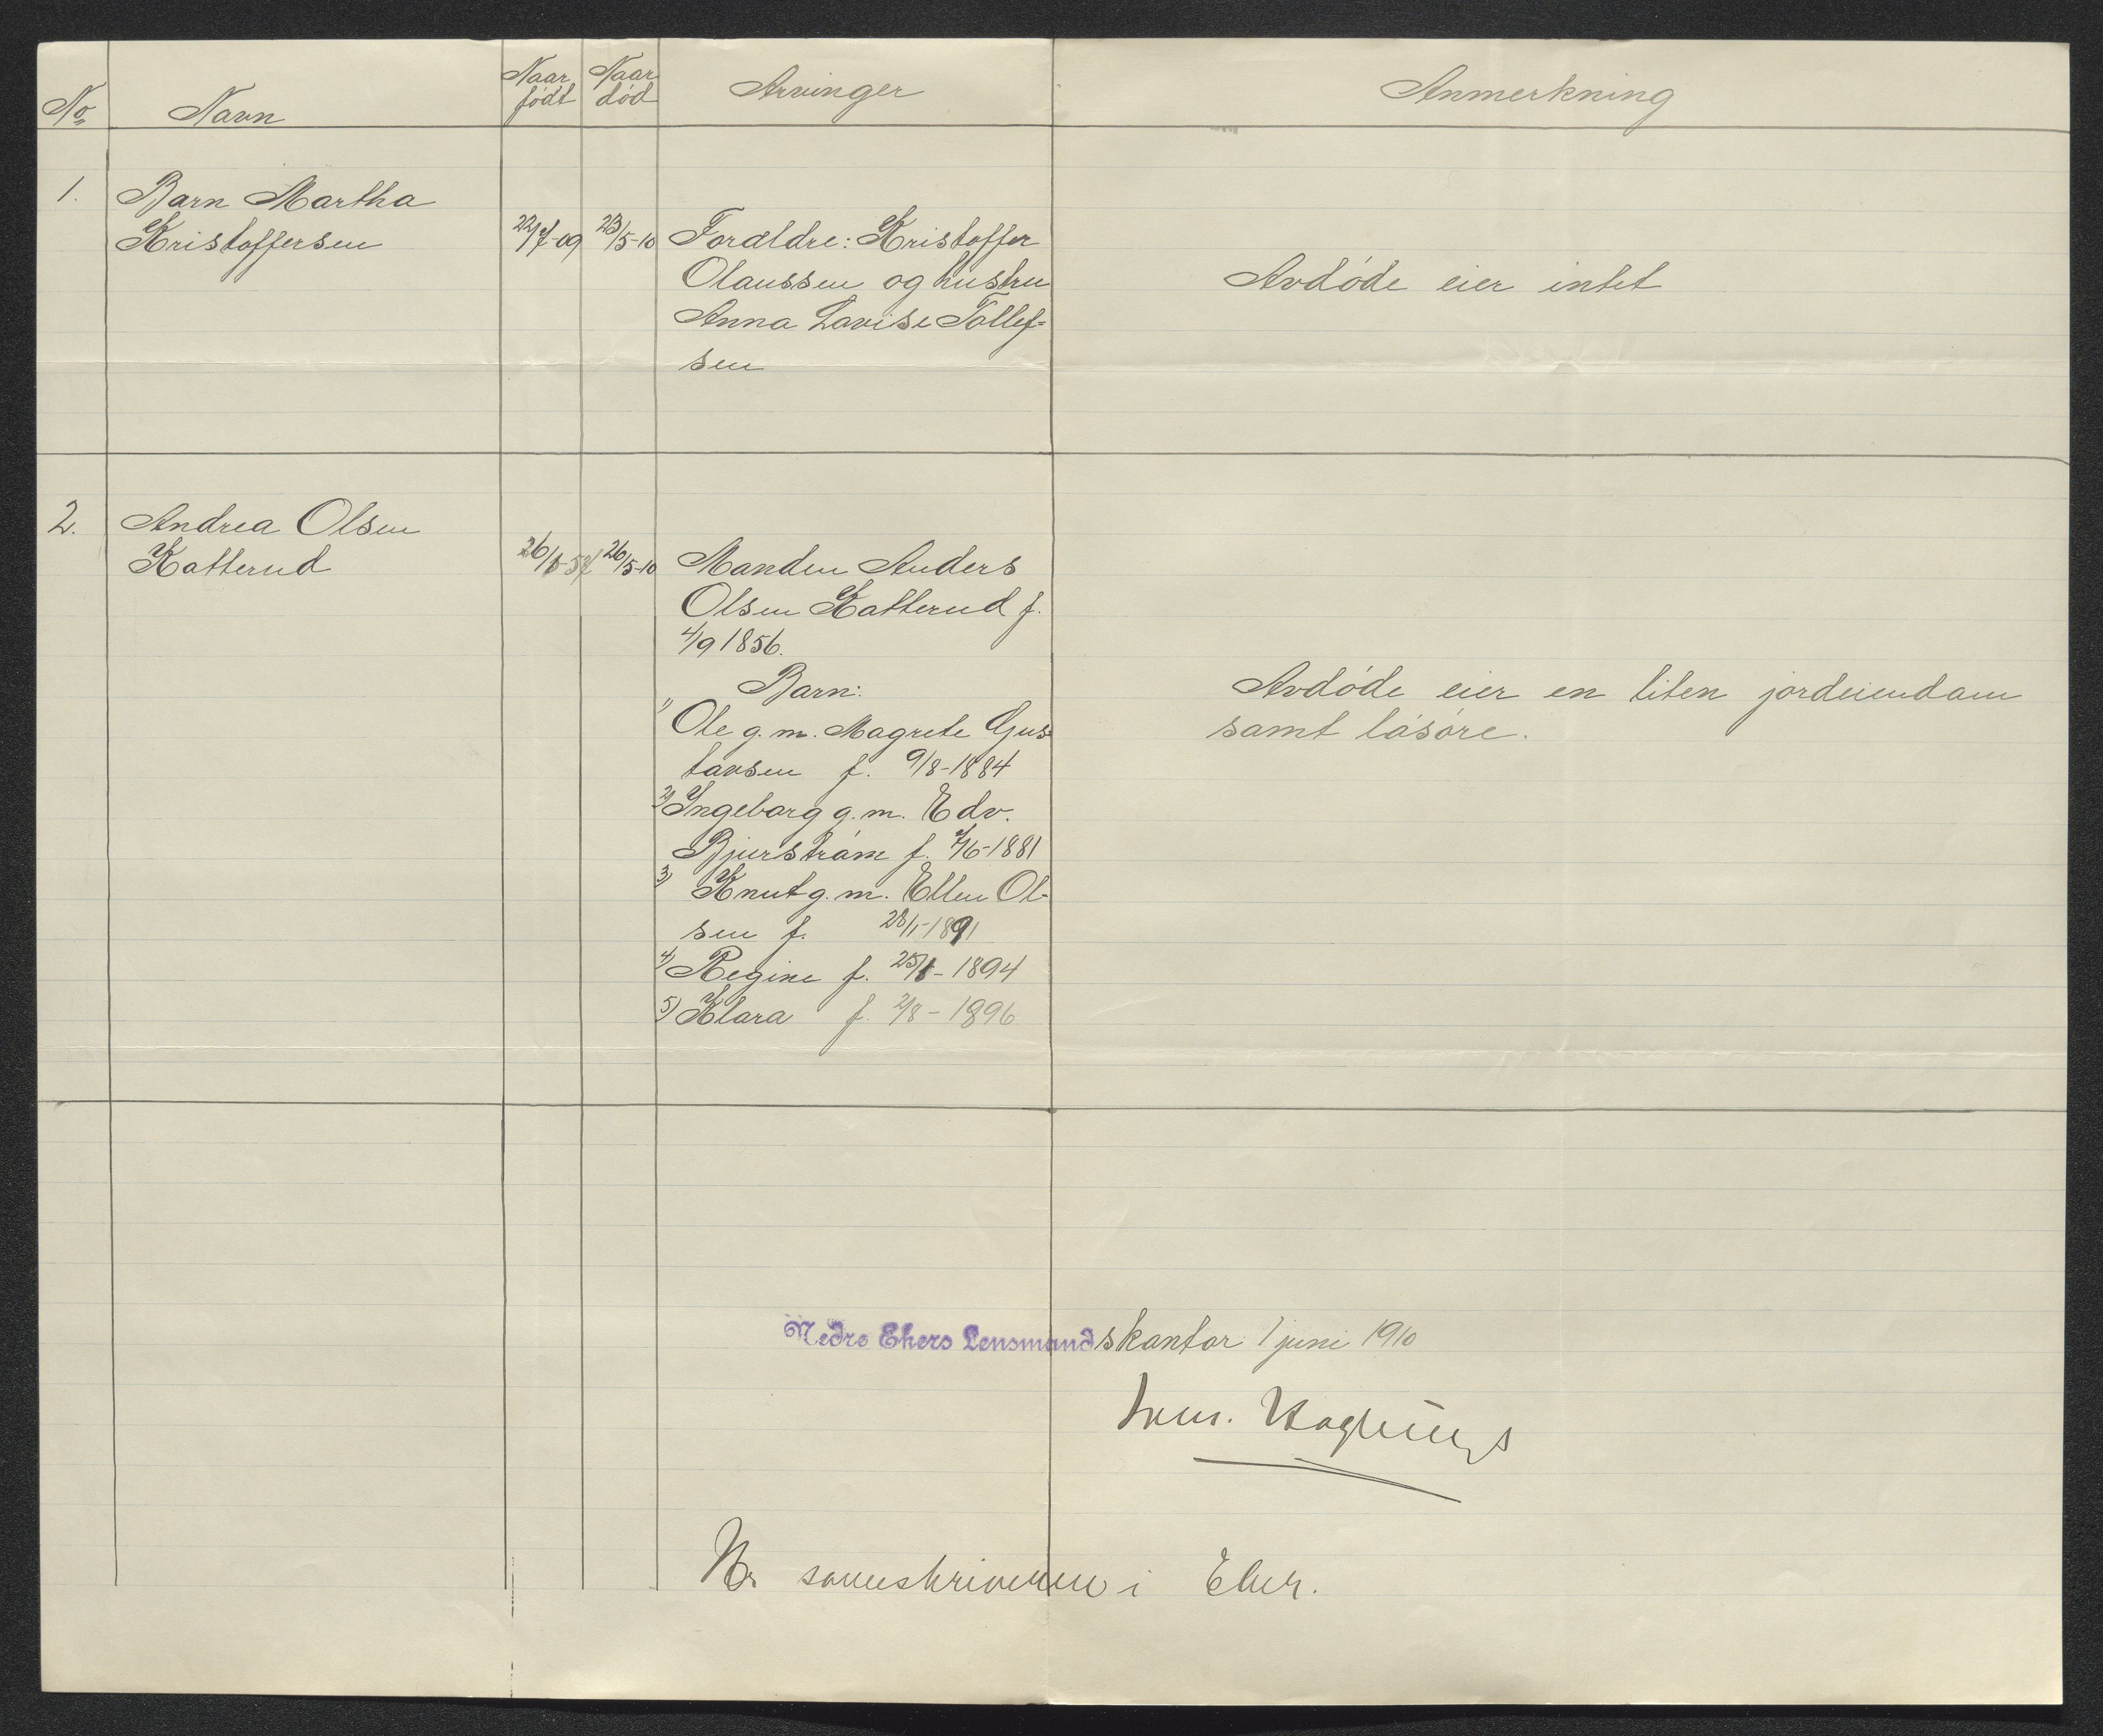 No Navn Naar født Naar død Arvinger Anmerkning
1. Barn Martha
Kristoffersen 22/7-09 23/5-10 Forældre: Kristoffer
Olaussen og hustru
Anna Lovise Tollef-
sen
Avdøde eier intet
2. Andrea Olsen
Katterud 26/5-10 Manden Anders
Olsen Katterud f.
4/9 1856.
Barn:
1) Ole g. m. Magrete Gus
tavsen f. 9/8-1884
2) Ingeborg g. m. Edv.
Bjurstrøm f. /6-1881
3) Knut g. m. Ellen Ol-
sen f. 28/1-1891
4) Regine f. 1894
5) Klara f. 2/8 - 1896
Avdøde eier en liten jordeiendom
samt løsøre.
Nedre Ekers Lensmandskontor 1 juni 1910
Hr sorenskriveren i Eker.